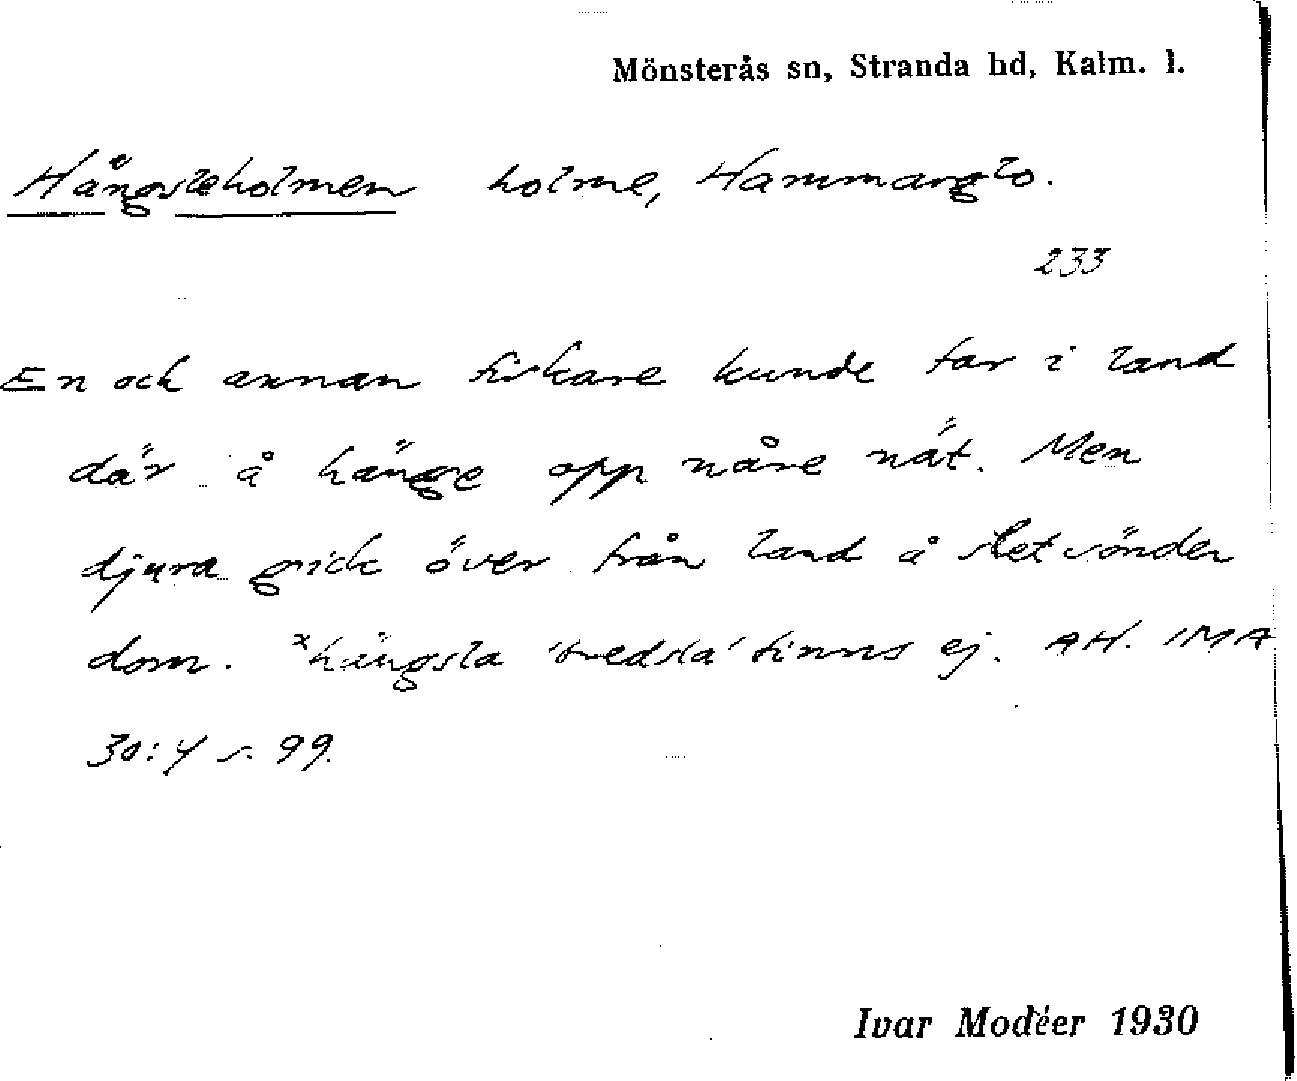 Mönsterås sn, Stranda hd, Kalm. l.
Hängsleholmen holme, Hammarglo.
233
En och annan fiskare kunde far i land
där å hänge opp nåre nät. Men
djura gick över från land å slet sönder
dom. *hängsla 'tredsla' finns ej. AH. IMA
30:4 s. 99.
Ivar Modéer 1930